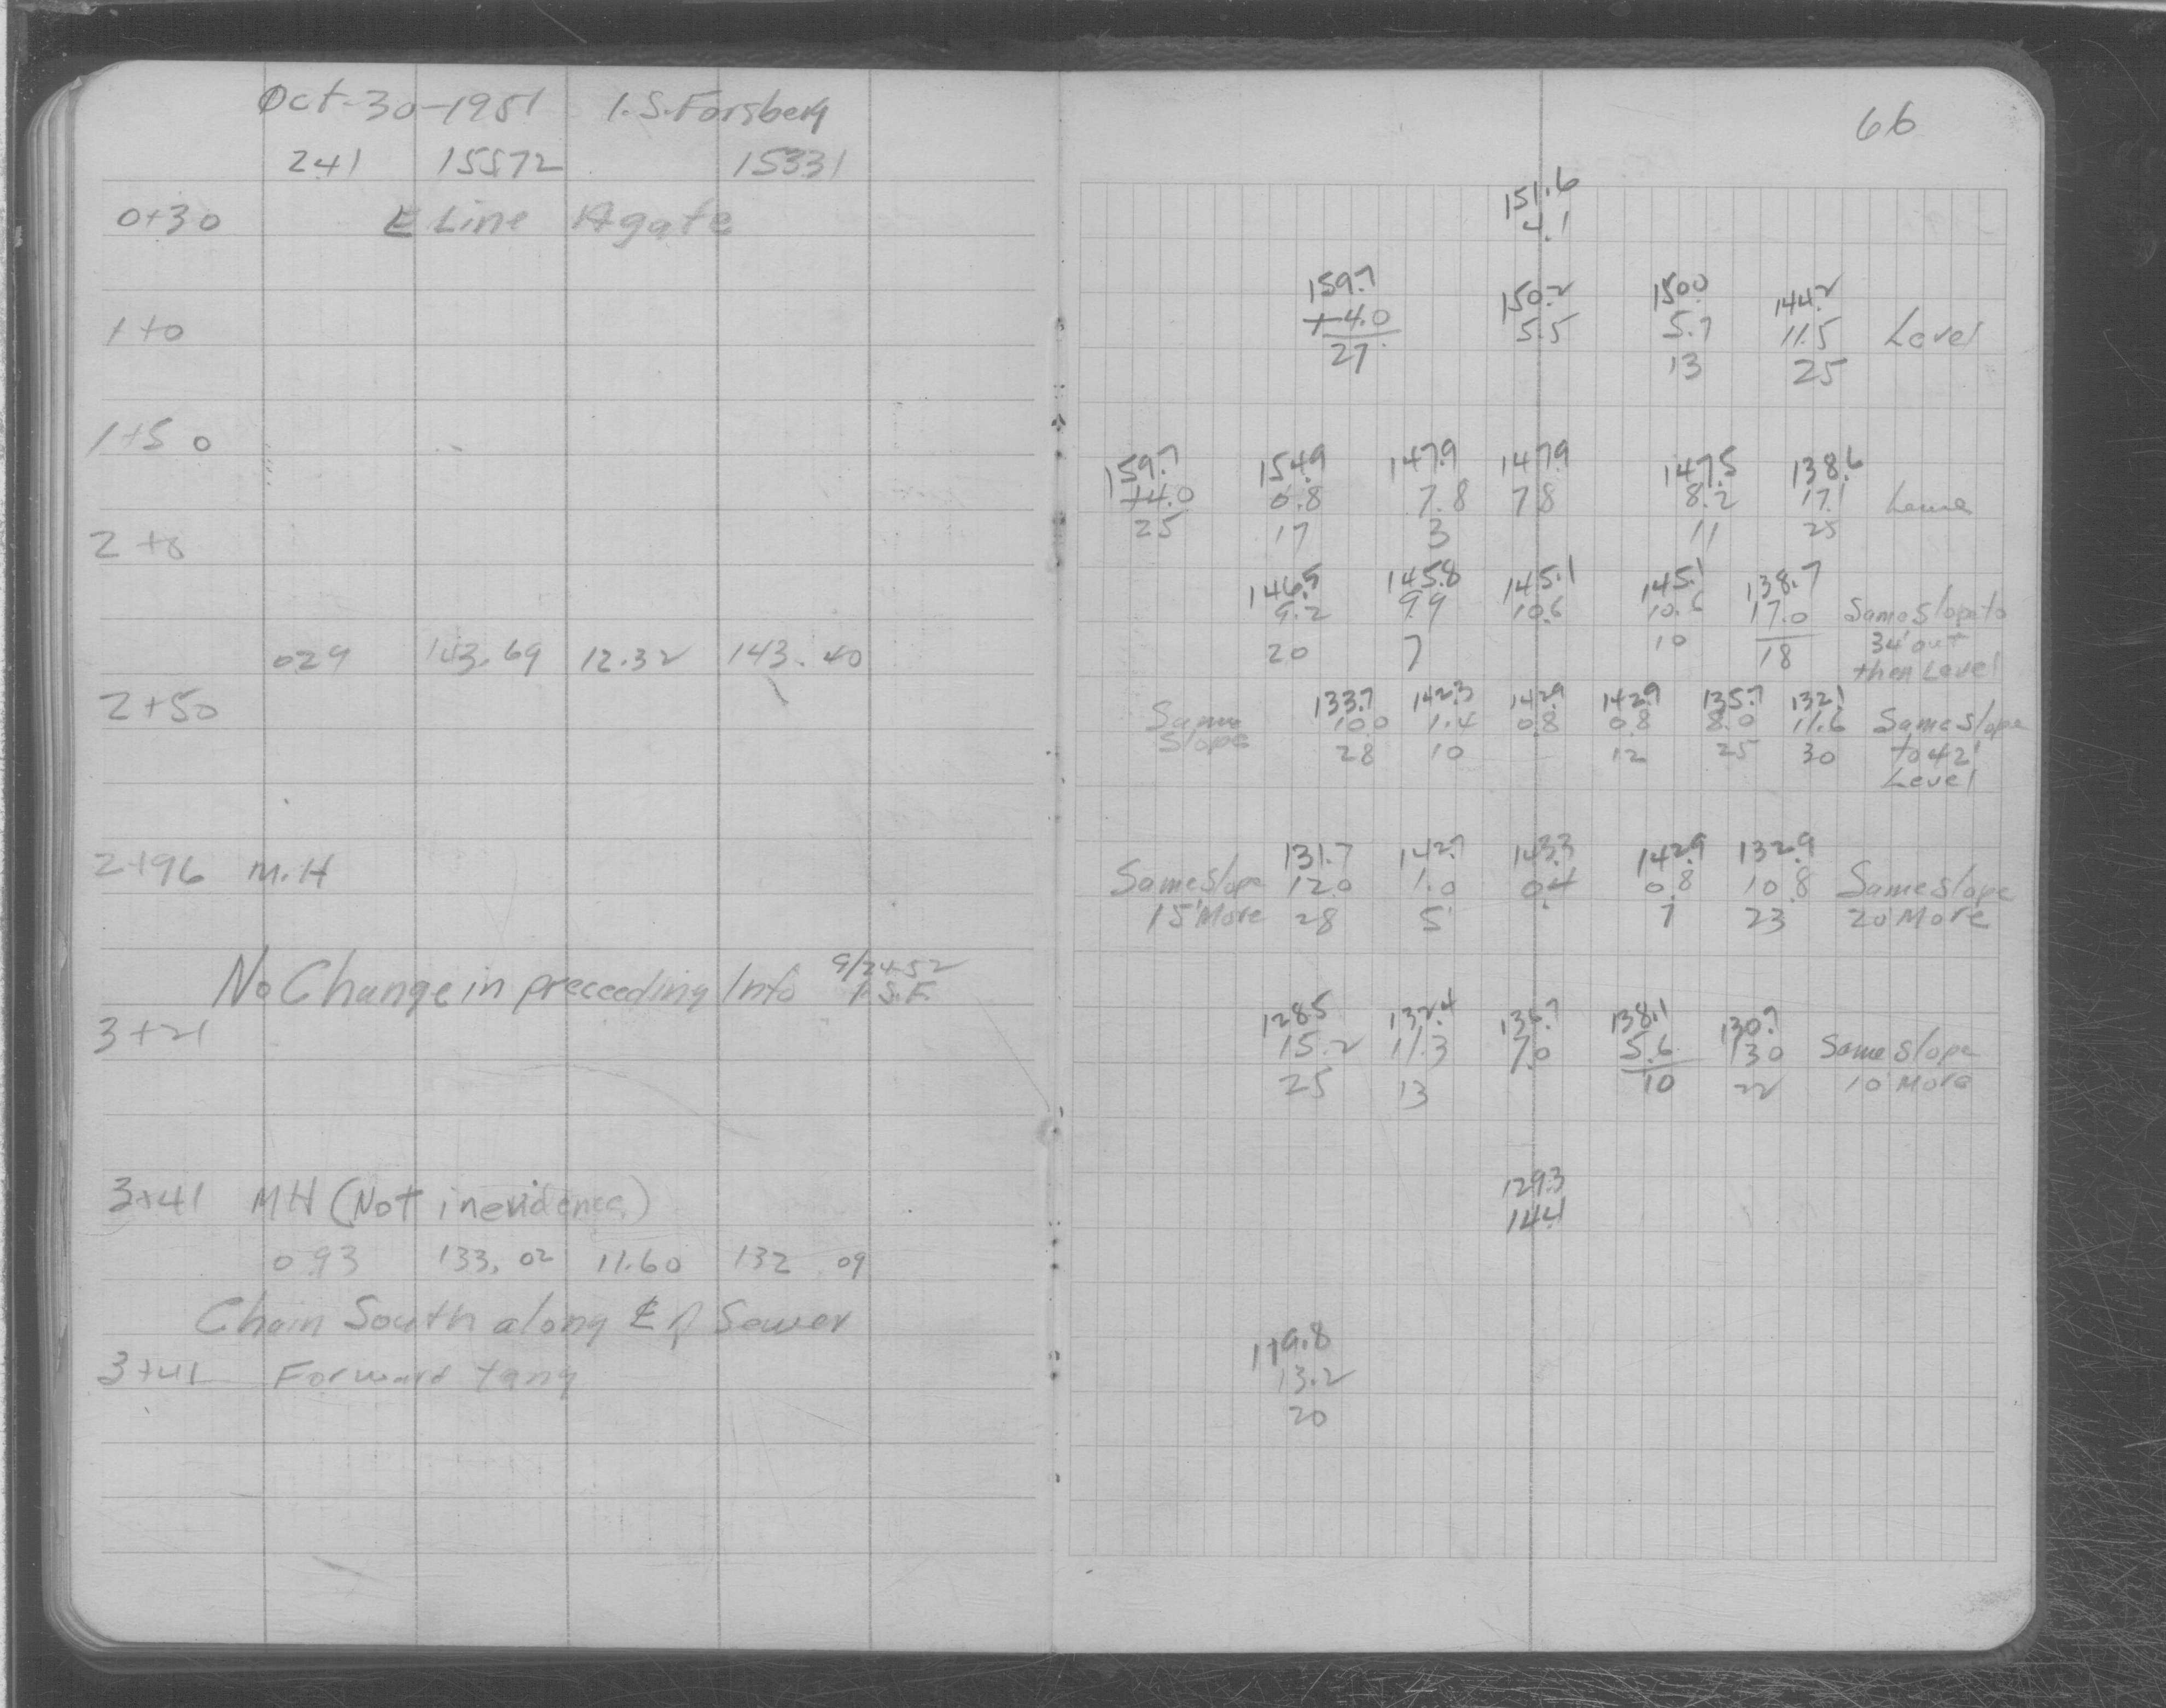 Oct-30-1951 I.S.Forsberg
66
241 15572 15331
0+30 E Line Agate
151.6
4.1
1+0
159.7 150.2 150.0 144.2
+4.0 5.5 5.7 11.5 Level
27 13 25
1+50
159.7 154.9 147.9 147.9 147.5 138.6
+4.0 0.8 7.8 7.8 8.2 17.1
25 17 3 11 25
2+0
146.5 145.8 145.1 145.1 138.7
9.2 9.9 10.6 10.6 17.0 Same Slope to
20 7 10 18 34' out
then Level
029 143.69 12.32 143.40
2+50
133.7 142.3 142.9 142.9 135.7 132.1
Same 10.0 1.4 0.8 0.8 8.0 11.6 Same Slope
Slope 28 10 12 25 30 to 42'
Level
2+96 M.H
131.7 142.7 143.3 142.9 132.9
Same Slope 12.0 1.0 0.4 0.8 10.8 Same slope
15' More 28 5 7 23 20' More
No Change in preceeding Info 9/24-52
I.S.F.
3+21
128.5 132.4 136.7 138.1 130.7
15.2 11.3 7.0 5.6 130 Same Slope
25 13 10 22 10' More
3+41 MH (Not in evidence)
129.3
14.4
0.93 133.02 11.60 132.09
Chain South along ℄ of Sewer
3+41 Forward tang
119.8
13.2
20